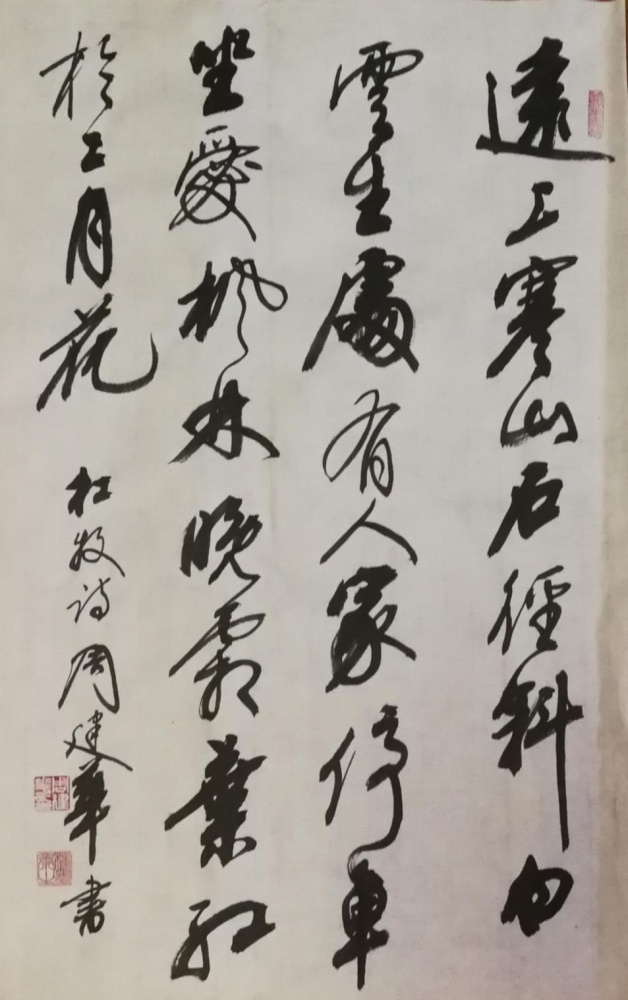 遠上寒山石徑斜白
雲生處有人家停車
坐愛楓林晚霜葉紅
於二月花 杜牧诗周建華書